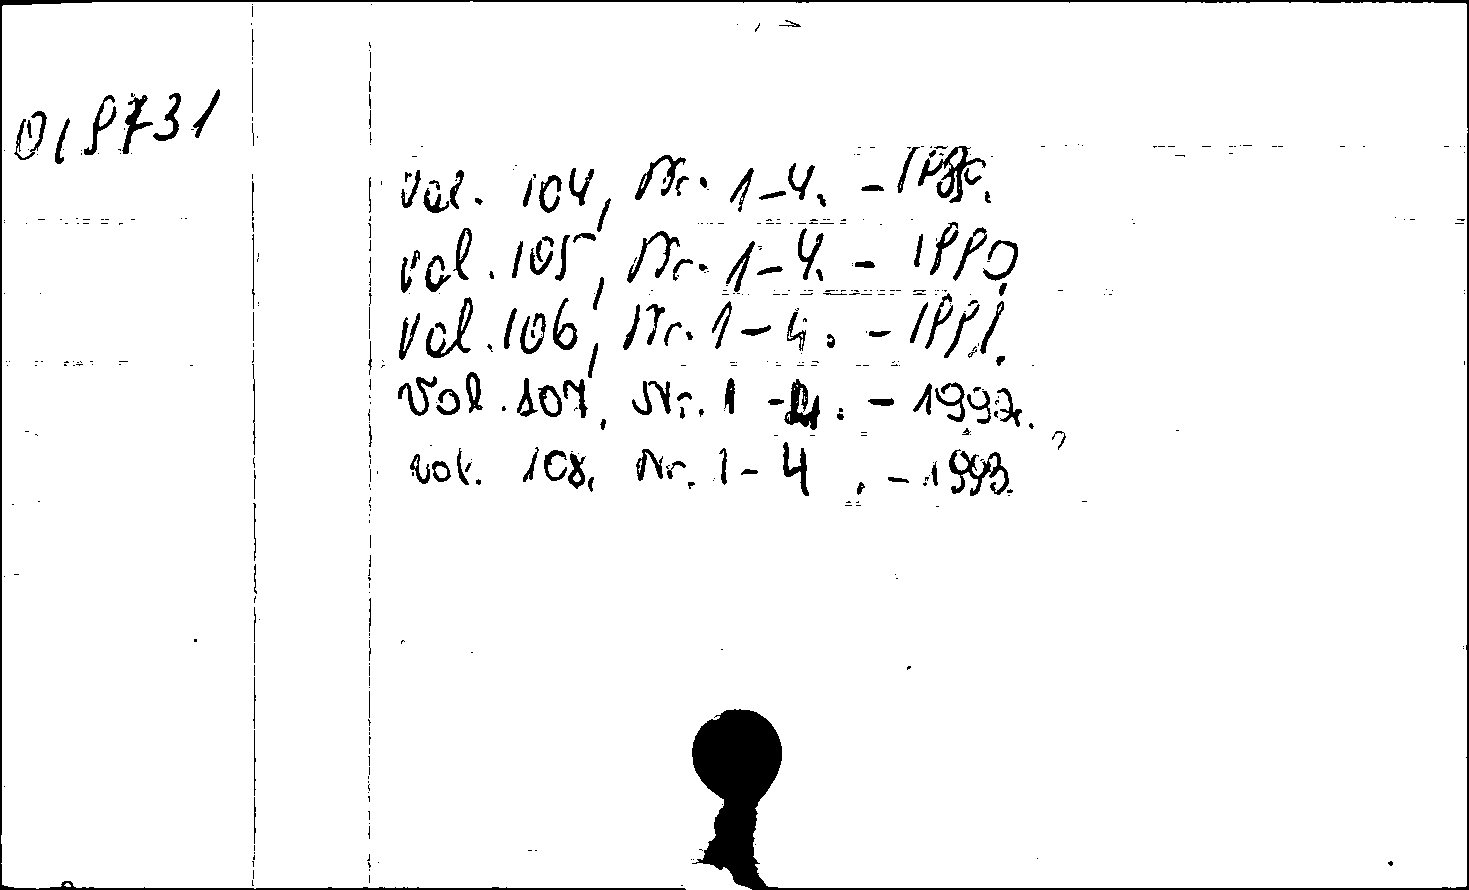 019731
Vol. 104, Nr. 1-4. - 1989.
Vol. 105, Nr. 1-4. - 1990.
Vol. 106, Nr. 1-4. - 1991.
Vol. 107, Nr. 1-4. - 1992.
Vol. 108, Nr. 1-4. - 1993.